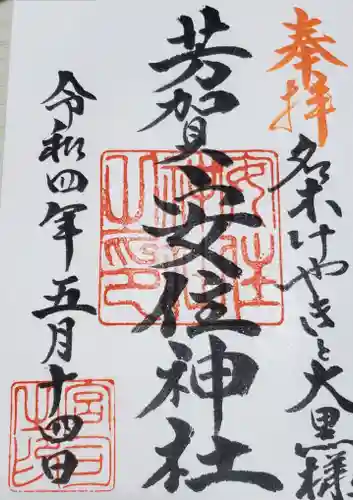 奉拝
名木けやきと大黒様
芳賀安住神社
令和四年五月十四日